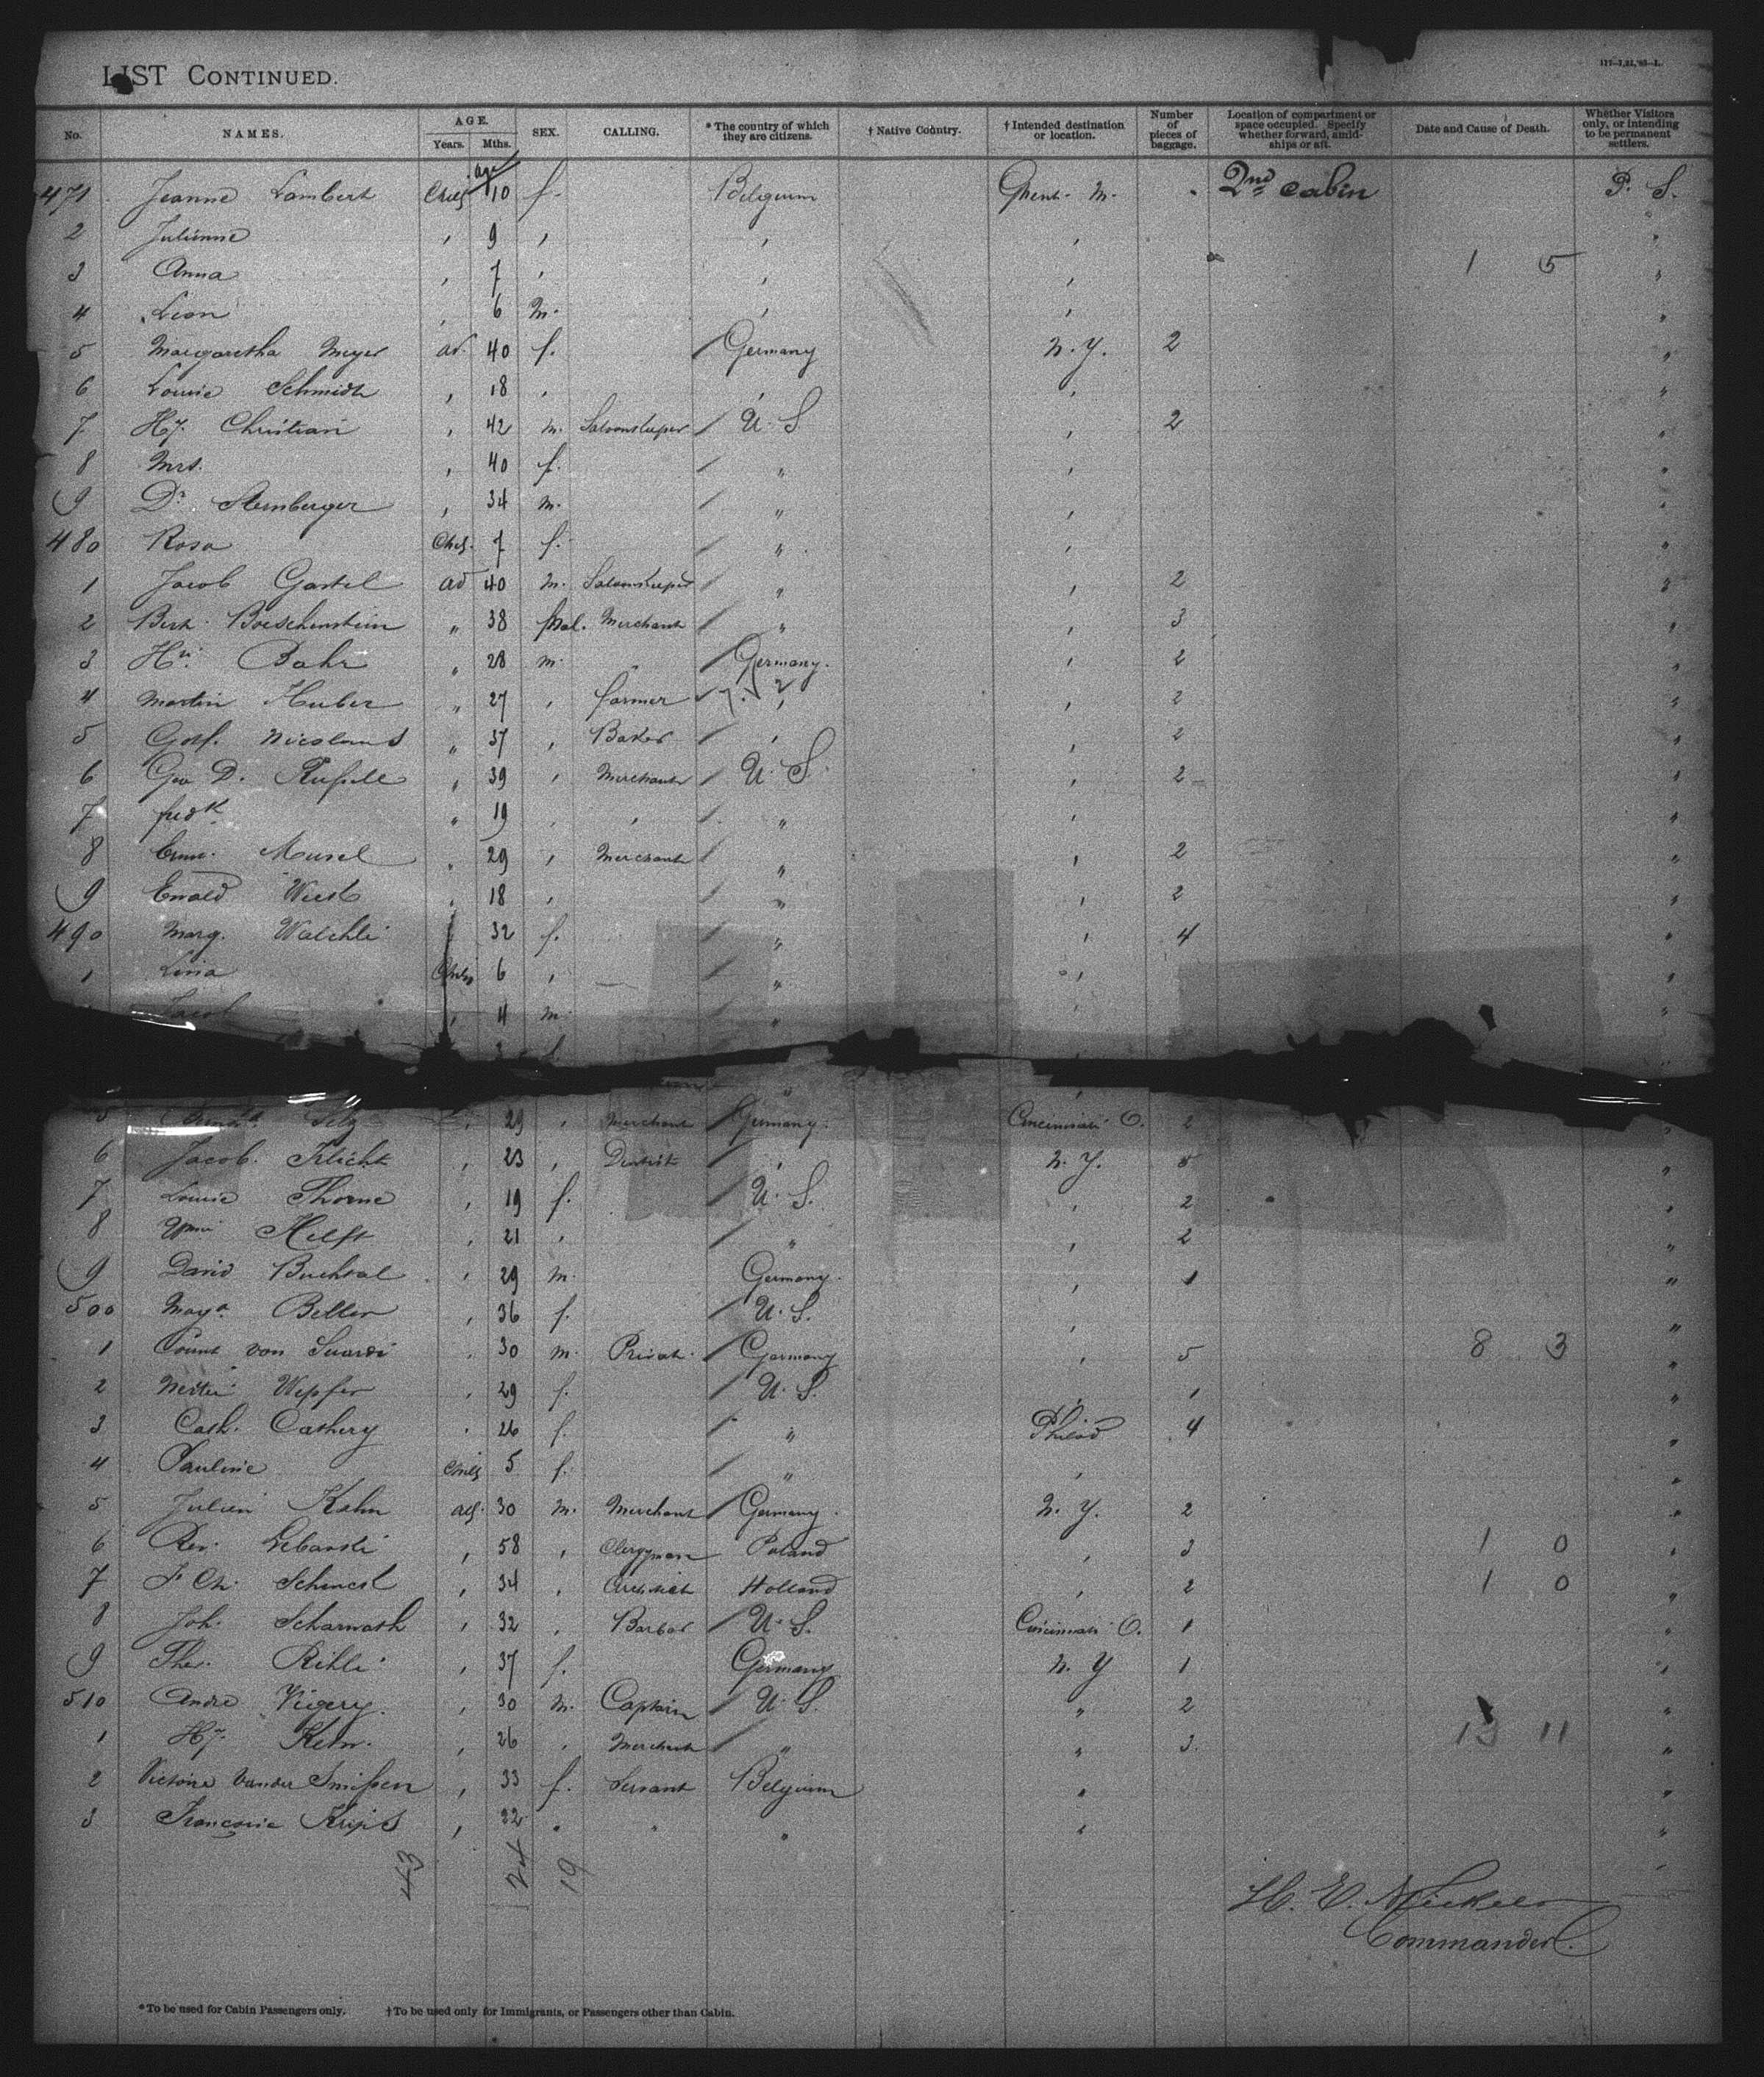 LIST CONTINUED.
117-1,21,'93-L.
No. NAMES. AGE. Years. Mths. SEX. CALLING. * The country of which they are citizens. † Native Country. † Intended destination or location. Number of pieces of baggage. Location of compartment or space occupied. Specify whether forward, amidships or aft. Date and Cause of Death. Whether Visitors only, or intending to be permanent settlers.
471 Jeanne Lambert Child 10 f. Belgium M. 2nd cabin P. S.
2 Julienne , 9 , , , "
3 Anna , 7 , , , 1 5 "
4 Leon , 6 m. , , "
5 Margaretha Meyer ad. 40 f. Germany N. Y. 2 "
6 Louise Schmidt , 18 , , , "
7 Hy. Christian , 42 m. Saloonkeeper U. S , 2 "
8 Mrs. , 40 f. " , "
9 Dr. Sternberger , 34 m. " , "
480 Rosa Chd. 7 f. " , "
1 Jacob Gastel ad 40 m. Saloonkeeper " , 2 "
2 Boeschenstein " 38 Merchant " , 3 "
3 Bahr " 28 m. " Germany. , 2 "
4 Martin Huber " 27 , farmer , , 2 "
5 Gotf. Nicolaus " 37 , Baker , , 2 "
6 Geo D. " 39 , Merchant U. S. , 2 "
7 fredk " 19 , , " , "
8 Musel , 29 , Merchant " , 2 "
9 Ewald , 18 , " , 2 "
490 Marg. Walchli 32 f. " , 4 "
1 Lina Child 6 , " , "
Jacob , 4 m. " , "
5 Selz , 29 , Merchant Germany. Cincinnati O. 2 "
6 Jacob. Flicht , 23 , Dentist , N. Y. 5 "
7 Louise Thorne , 19 f. U. S. , 2 "
8 Hilft , 21 , " , 2 "
9 David Buchtal , 29 m. Germany. , 1 "
500 Beller , 36 f. U. S. , "
1 Count von Suardi , 30 m. Privat. Germany , 5 8 3 "
2 Wepfer , 29 f. U. S. , 1 "
3 Cath. Cathery , 26 f. " Philad 4 "
4 Pauline Child 5 f. " , "
5 Julien Kahn ad. 30 m. Merchant Germany. N. Y. 2 "
6 Rev. Lebarski , 58 , Clergyman Poland , 3 1 0 "
7 , 34 , Architect Holland , 2 1 0 "
8 Joh. Scharwath , 32 , Barber U. S. Cincinnati O. 1 "
9 Ther. Rihli , 37 f. Germany N. Y 1 "
510 Andre Vigery. , 30 m. Captain U. S. " 2 "
1 Hy. , 26 , Merchant " " 3. 13 11 "
2 Victoire Vander Smissen , 33 f. Servant Belgium " "
3 Krips , 22 " " " " "
24 19
H. E. Nickels
Commander.
* To be used for Cabin Passengers only. † To be used only for Immigrants, or Passengers other than Cabin.